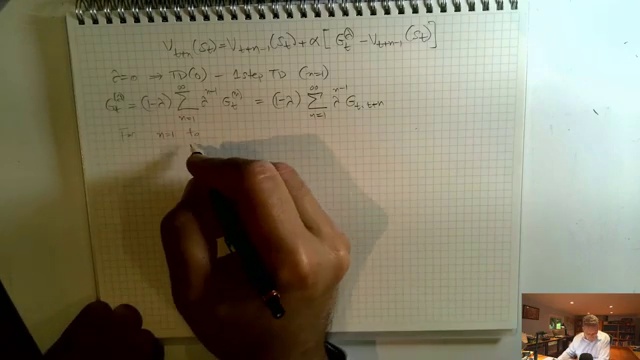 V_{t+n}(S_t) = V_{t+n-1}(S_t) + α[G_t^{(λ)} - V_{t+n-1}(S_t)]
λ=0 ⇒ TD(0) - 1 step TD (n=1)
G_t^{(λ)} = (1-λ) ∑_{n=1}^∞ λ^{n-1} G_t^{(n)} = (1-λ) ∑_{n=1}^∞ λ^{n-1} G_{t,t+n}
For n=1 to